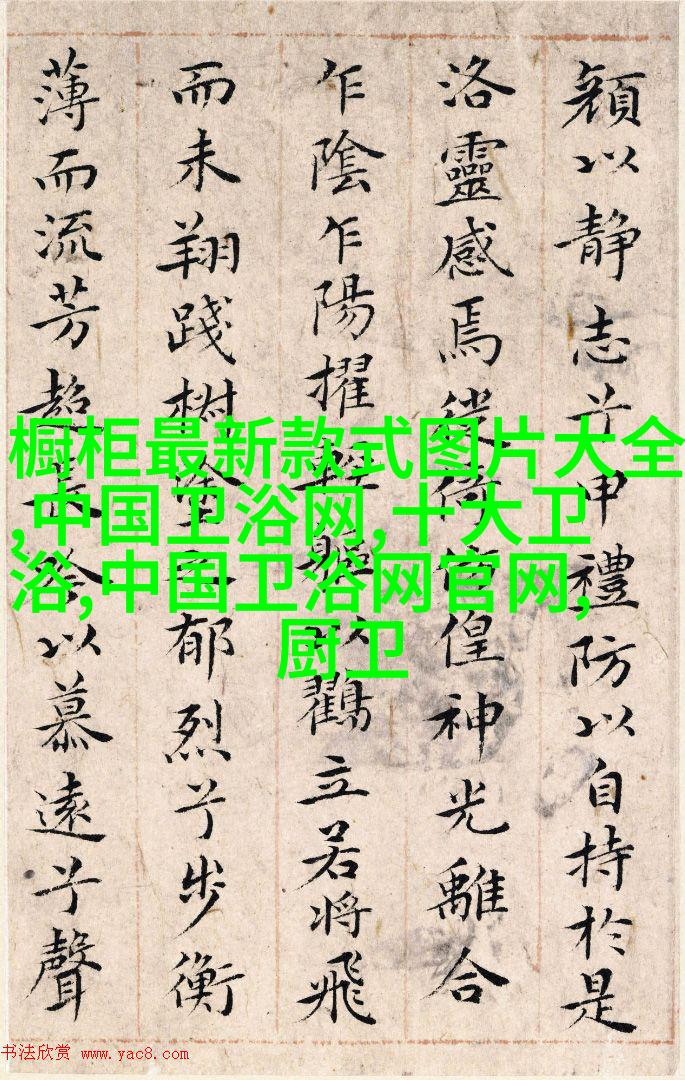 顔以静志兮申禮防以自持於是
洛靈感焉徙倚偟神光離合
乍陰乍陽擢輕軀以鶴立若將飛
而未翔踐椒塗郁烈兮步衡
薄而流芳超長以慕遠兮聲
橱柜最新款式图片大全
,中国卫浴网,十大卫
浴,中国卫浴网官网,
厨卫
书法欣赏 www.yac8.com